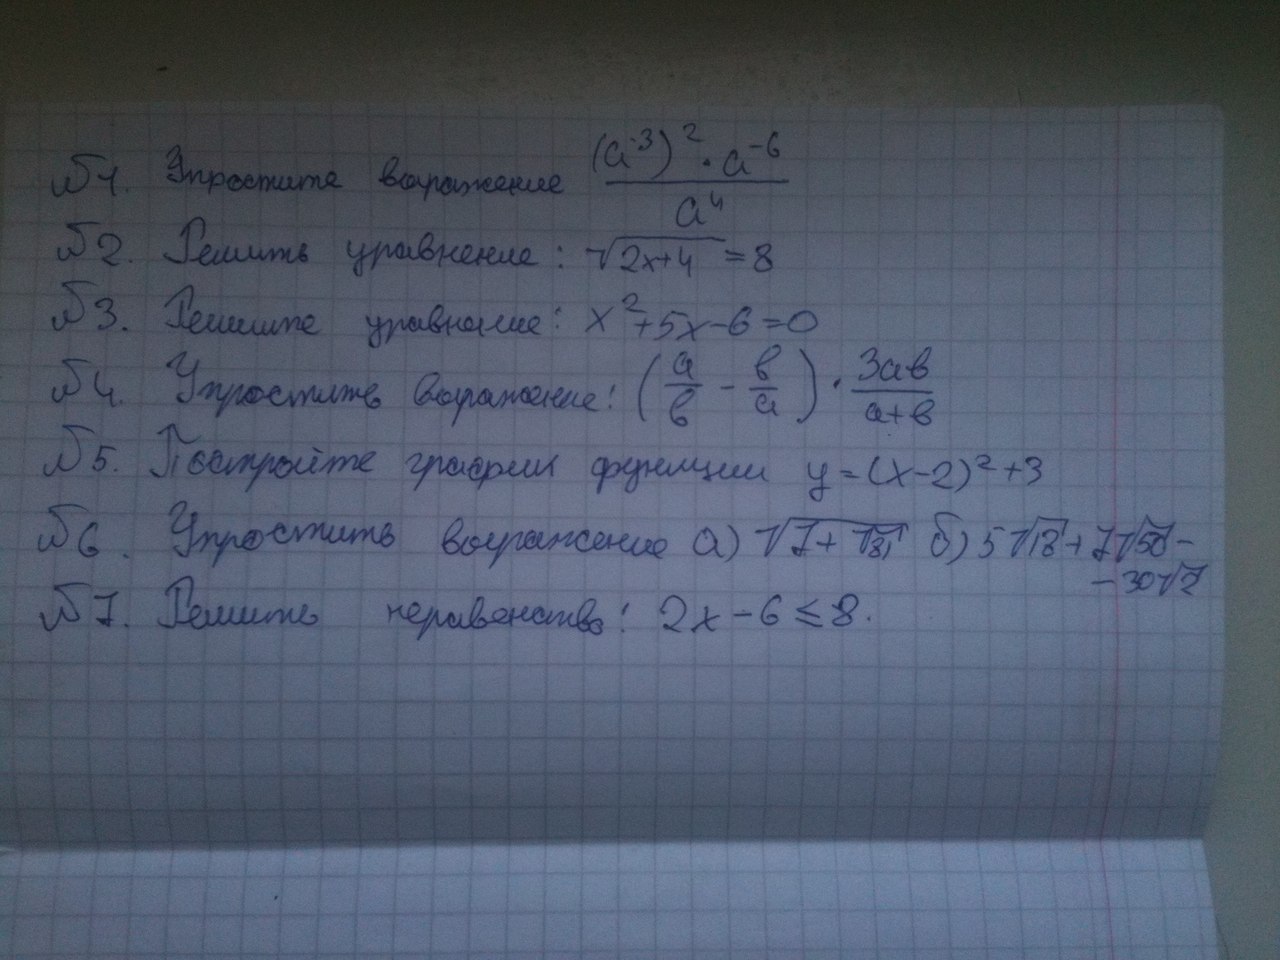 №1. Упростите выражение ((a^-3)^2 · a^-6)/a^4
№2. Решить уравнение: √(2x+4) = 8
№3. Решите уравнение: x²+5x-6=0
№4. Упростить выражение: (a/b - b/a) · 3ab/(a+b)
№5. Постройте график функции y=(x-2)²+3
№6. Упростить выражение а) √(7+√81) б) 5√18+7√50-
-30√2
№7. Решить неравенство: 2x-6≤8.